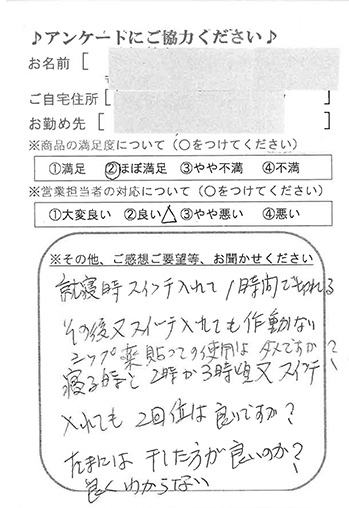 ♪アンケートにご協力ください♪
お名前 [
ご自宅住所 [ ]
お勤め先 [ ]
※商品の満足度について（○をつけてください）
①満足 ②ほぼ満足 ③やや不満 ④不満
※営業担当者の対応について（○をつけてください）
①大変良い ②良い△ ③やや悪い ④悪い
※その他、ご感想ご要望等、お聞かせください
就寝時スイッチ入れて1時間できれる
その後又スイッチ入れても作動ない
シップ薬貼っての使用はダメですか？
寝る時と2時か3時頃又スイッチ
入れても2回位は良いですか？
たまには干した方が良いのか？
良くわからない